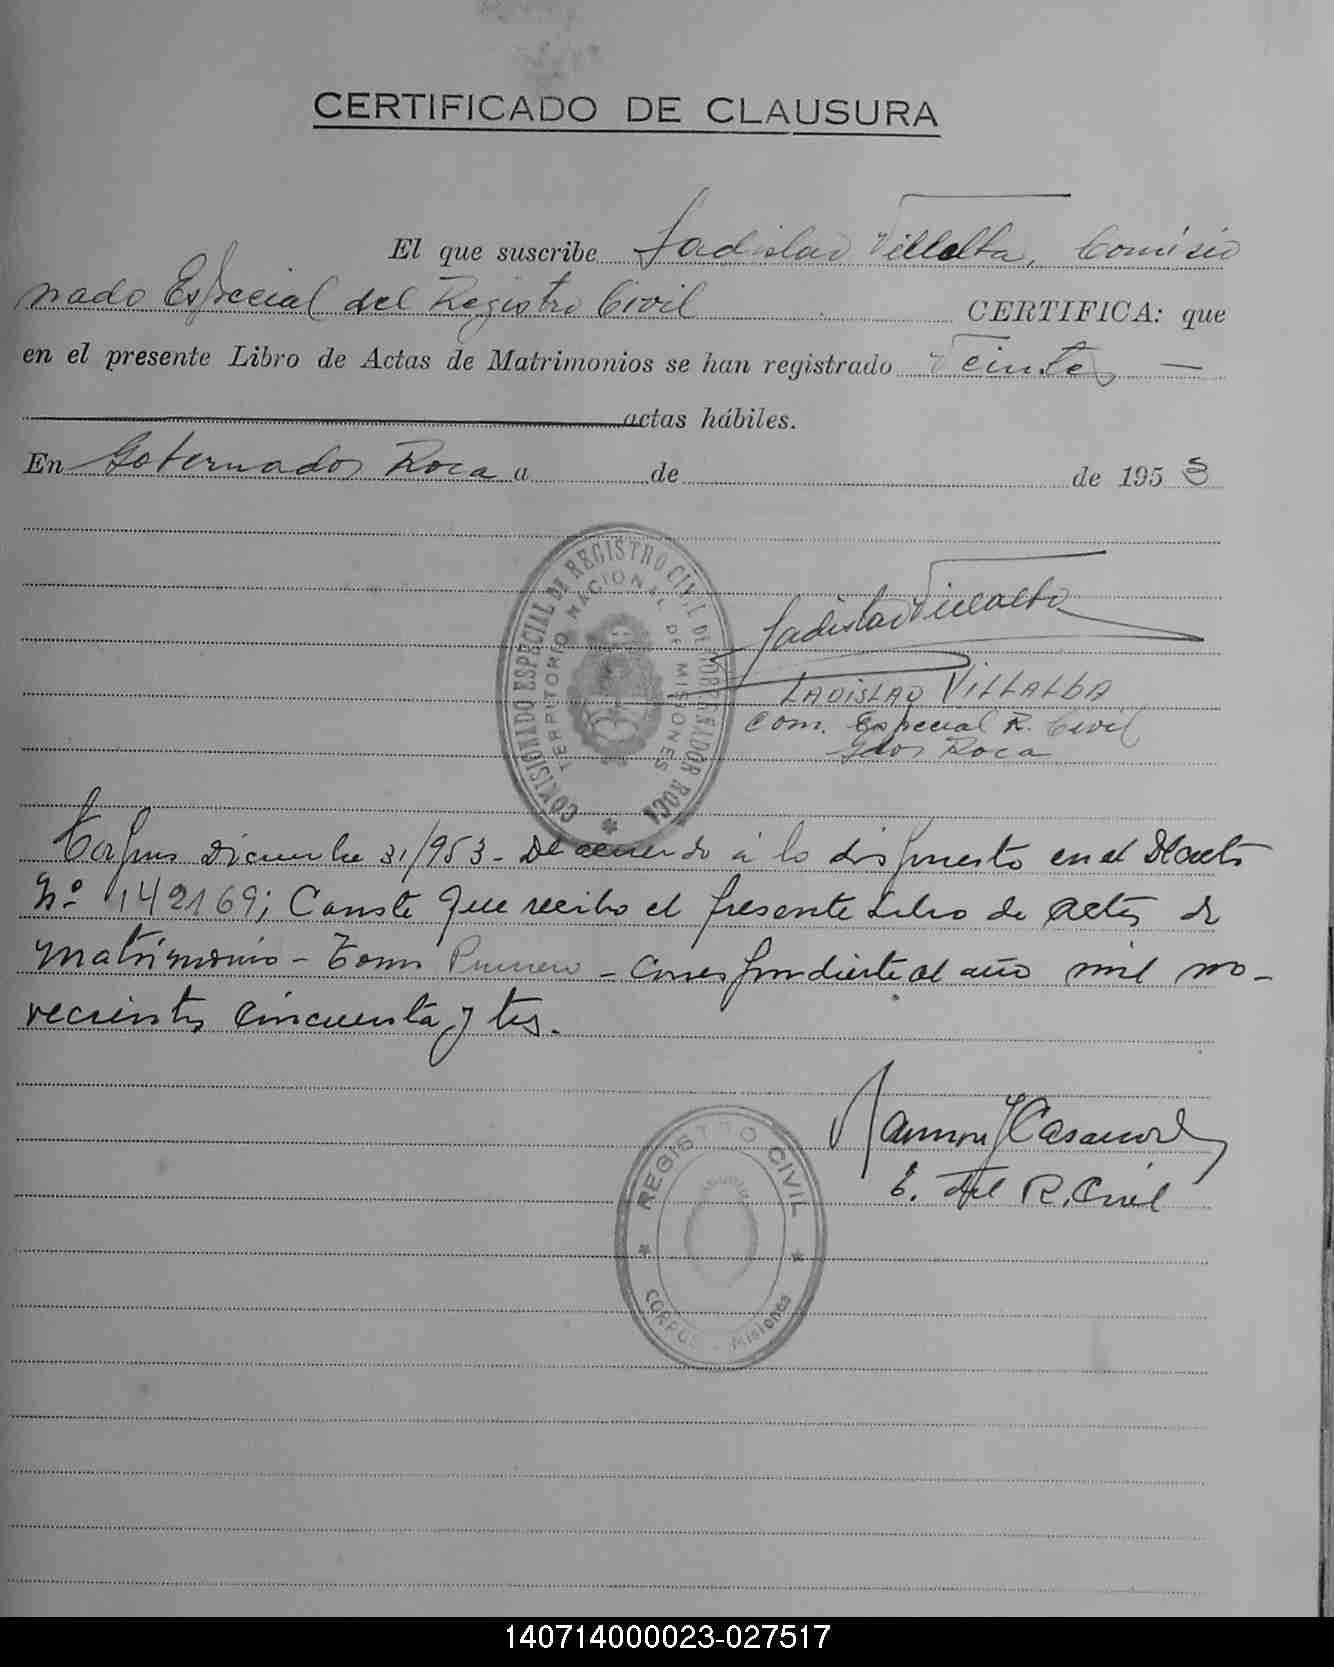 CERTIFICADO DE CLAUSURA
El que suscribe Ladislao Villalba, Comisio
nado Especial del Registro Civil CERTIFICA: que
en el presente Libro de Actas de Matrimonios se han registrado Veinte —
actas hábiles.
En Gobernador Roca a de de 1953
COMISIONADO ESPECIAL DE REGISTRO CIVIL DE GOBERNADOR ROCA
TERRITORIO NACIONAL DE MISIONES
Ladislao Villalba
LADISLAO VILLALBA
Com. Especial R. Civil
Gdor Roca
Corpus Diciembre 31/953 - De acuerdo á lo dispuesto en el Decreto
Nº 142169; Conste que recibo el presente Libro de actas de
matrimonio - Tomo Primero - Correspondiente al año mil no-
vecientos cincuenta y tres.
Ramon J Casanova
E. del R. Civil
REGISTRO CIVIL
CORPUS - Misiones
140714000023-027517